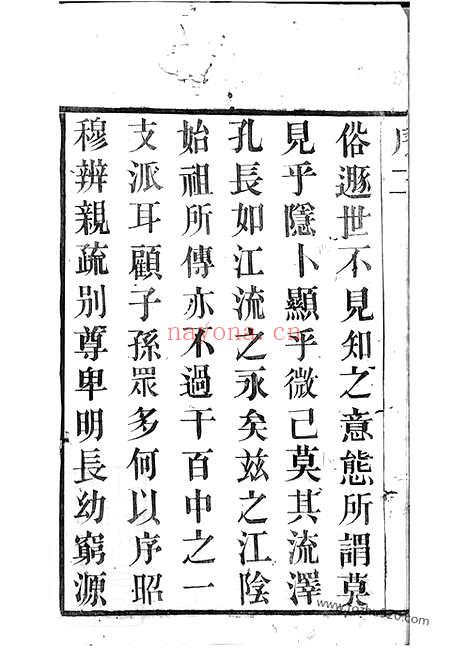 俗遯世不見知之意態所謂莫
見乎隱卜顯乎微己莫其流澤
孔長如江流之永矣兹之江陰
始祖所傳亦不過千百中之一
支派耳顧子孫眾多何以序昭
穆辨親疏别尊卑明長幼窮源
nayona.cn